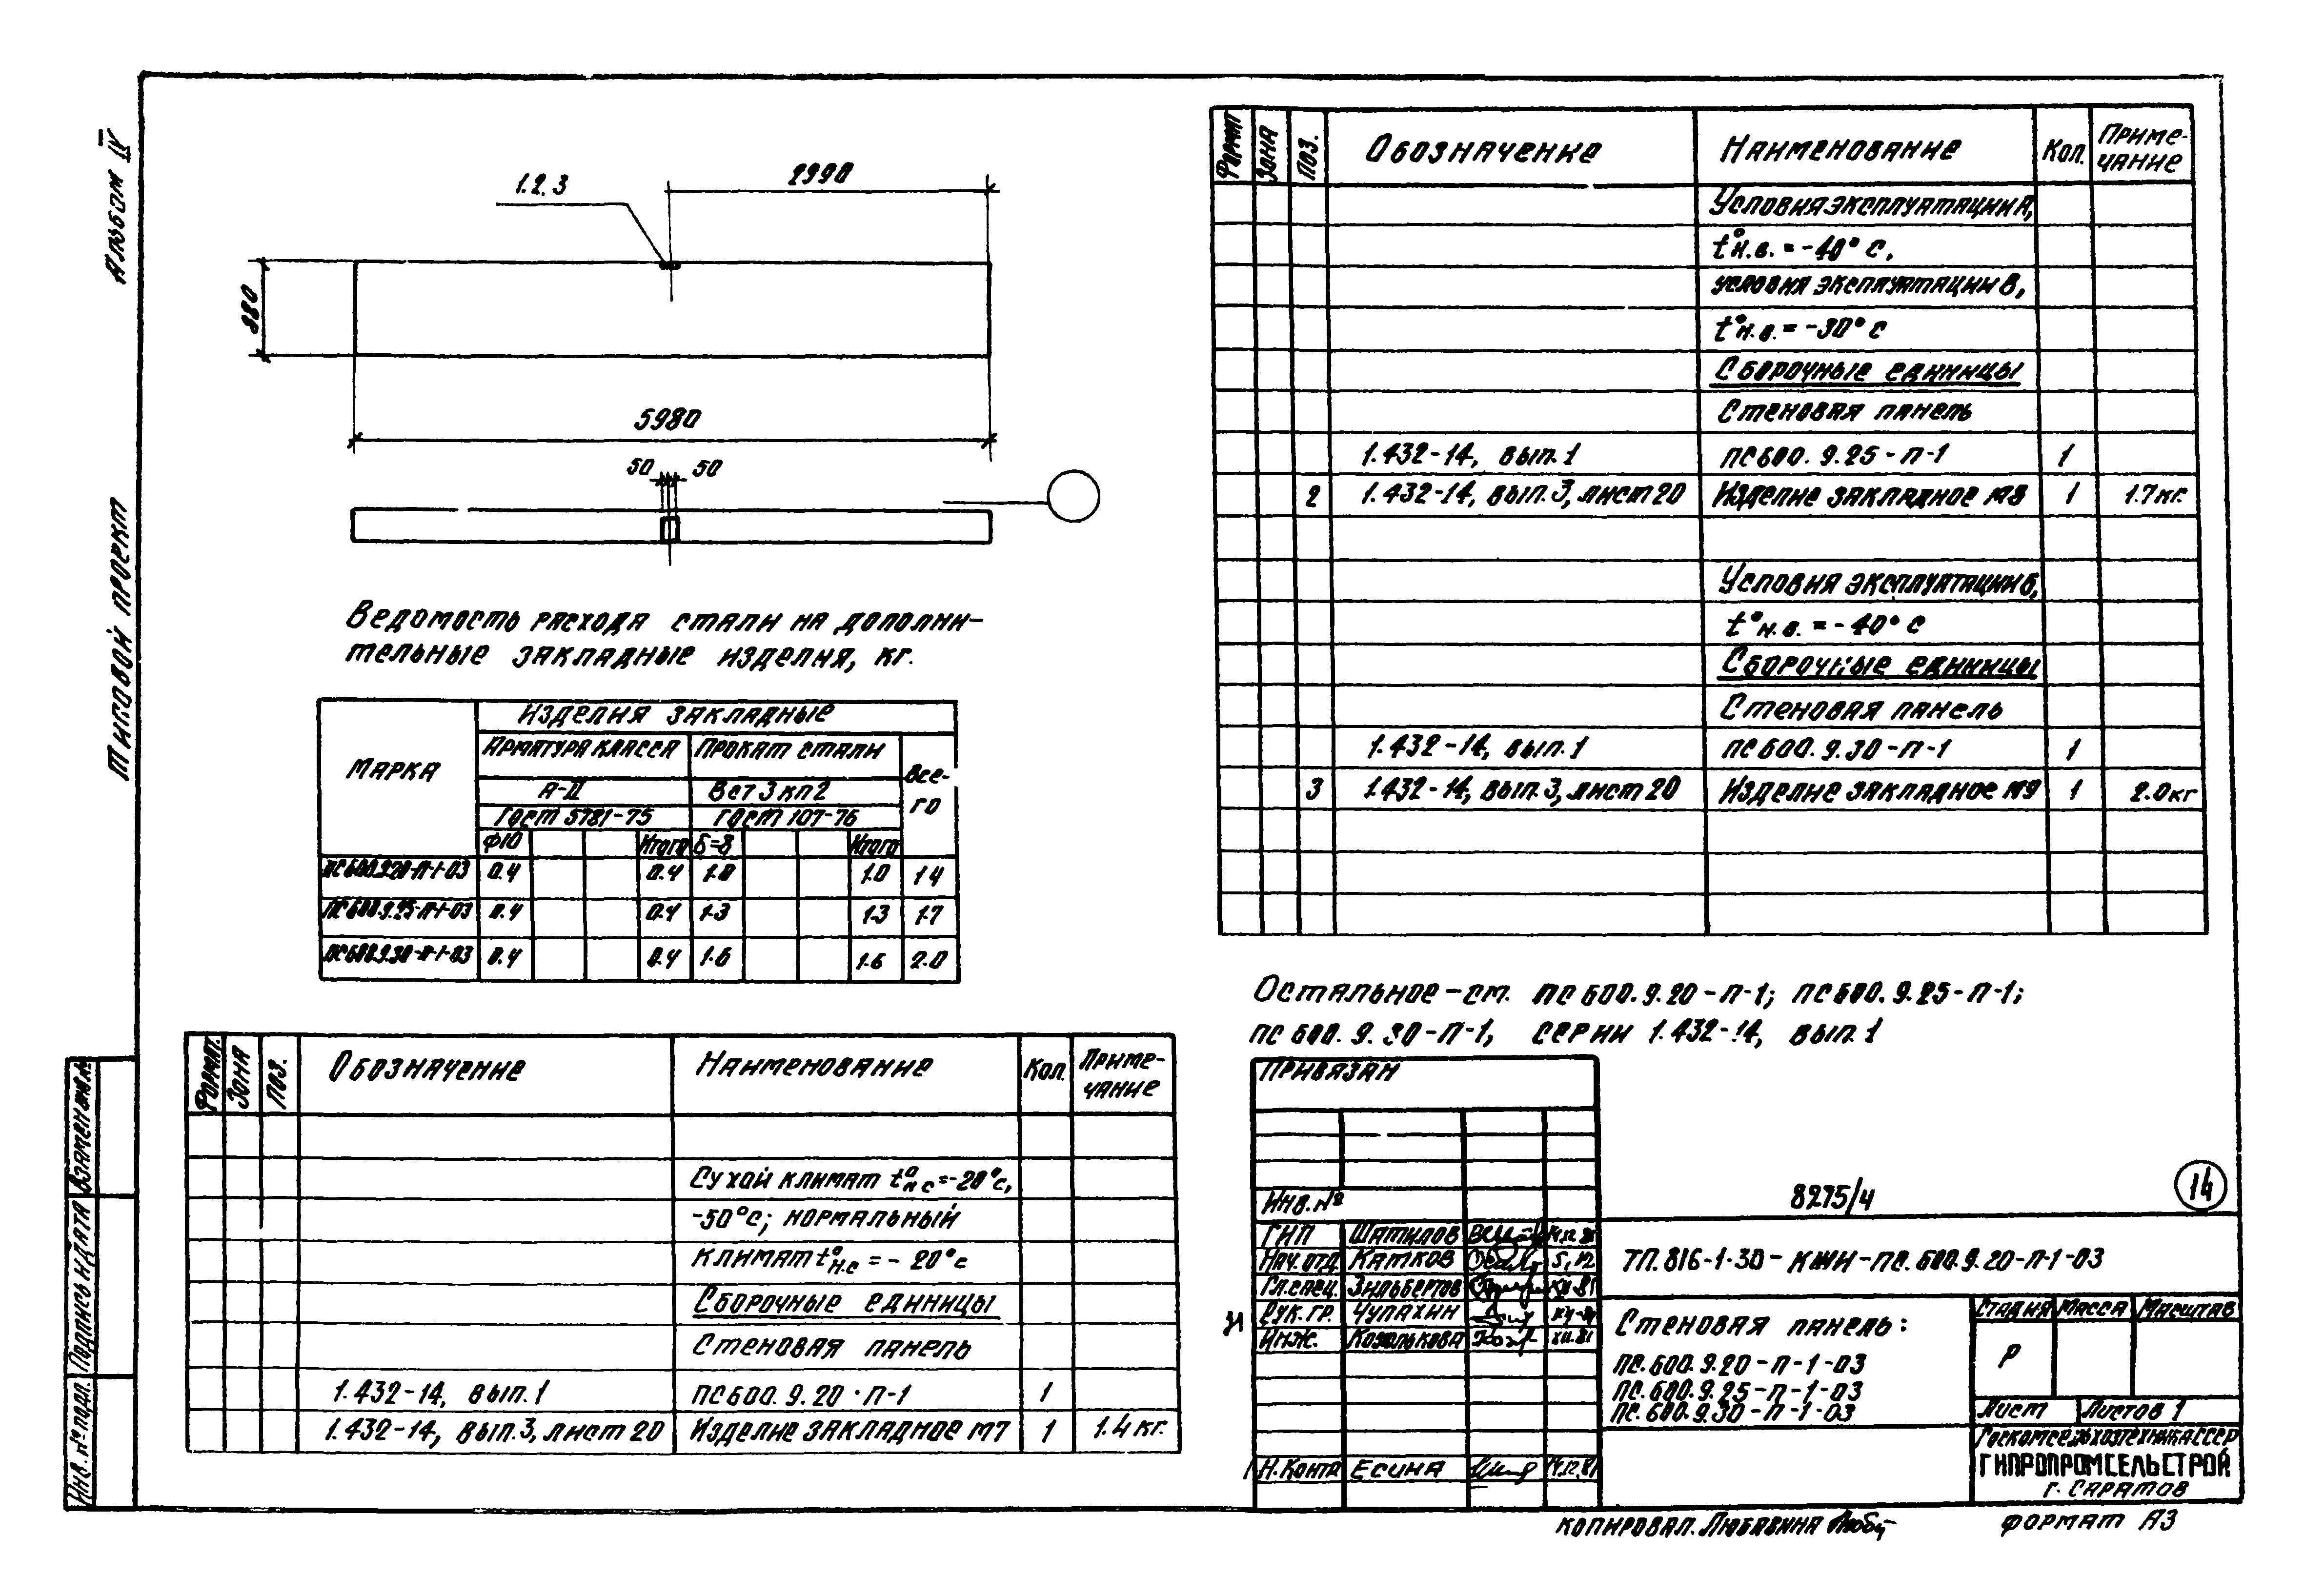 Альбом IV
Типовой проект
1.2.3
2990
880
5980
50 50
Ведомость расхода стали на дополни-
тельные закладные изделия, кг.
Марка
Изделия закладные
Арматура класса
Прокат стали
Все-
го
А-II
Вст 3 кп 2
ГОСТ 5781-75
ГОСТ 107-76
Ф10 Итого δ=8 Итого
ПС600.9.20-П-1-03 0.4 0.4 1.0 1.0 1.4
ПС600.9.25-П-1-03 0.4 0.4 1.3 1.3 1.7
ПС600.9.30-П-1-03 0.4 0.4 1.6 1.6 2.0
Формат. Зона Поз. Обозначение Наименование Кол. Приме-
чание
Сухой климат t°н.с=-20°с,
-50°с; нормальный
климат t°н.с = - 20°с
Сборочные единицы
Стеновая панель
1.432-14, вып.1 ПС600.9.20-П-1 1
1.432-14, вып.3, лист 20 Изделие закладное М7 1 1.4 кг.
Формат Зона Поз. Обозначение Наименование Кол. Приме-
чание
Условия эксплуатации А,
t°н.в. = -40° с,
условия эксплуатации В,
t°н.в. = -30° с
Сборочные единицы
Стеновая панель
1.432-14, вып.1 ПС600.9.25-П-1 1
2 1.432-14, вып.3, лист 20 Изделие закладное М8 1 1.7 кг.
Условия эксплуатации Б,
t°н.в. = -40° с
Сборочные единицы
Стеновая панель
1.432-14, вып.1 ПС600.9.30-П-1 1
3 1.432-14, вып.3, лист 20 Изделие закладное М9 1 2.0 кг
Остальное-см. ПС600.9.20-П-1; ПС600.9.25-П-1;
ПС600.9.30-П-1, серии 1.432-14, вып.1
Привязан
Инв.№
8275/4
14
ГИП Шатилов
Нач.отд. Катков
Гл.спец. Зильберов
Рук.гр. Чупахин
Инж. Козолькова XII.81
Н.Контр Есина 14.12.81
ТП.816-1-30-КЖИ-ПС.600.9.20-П-1-03
Стеновая панель:
ПС.600.9.20-П-1-03
ПС.600.9.25-П-1-03
ПС.600.9.30-П-1-03
Стадия Масса Масштаб
Р
Лист Листов 1
Госкомсельхозтехника СССР
ГИПРОПРОМСЕЛЬСТРОЙ
г. Саратов
Инв.№ подл. Подпись и дата Взамен инв.№
Копировал. Любавина
формат А3